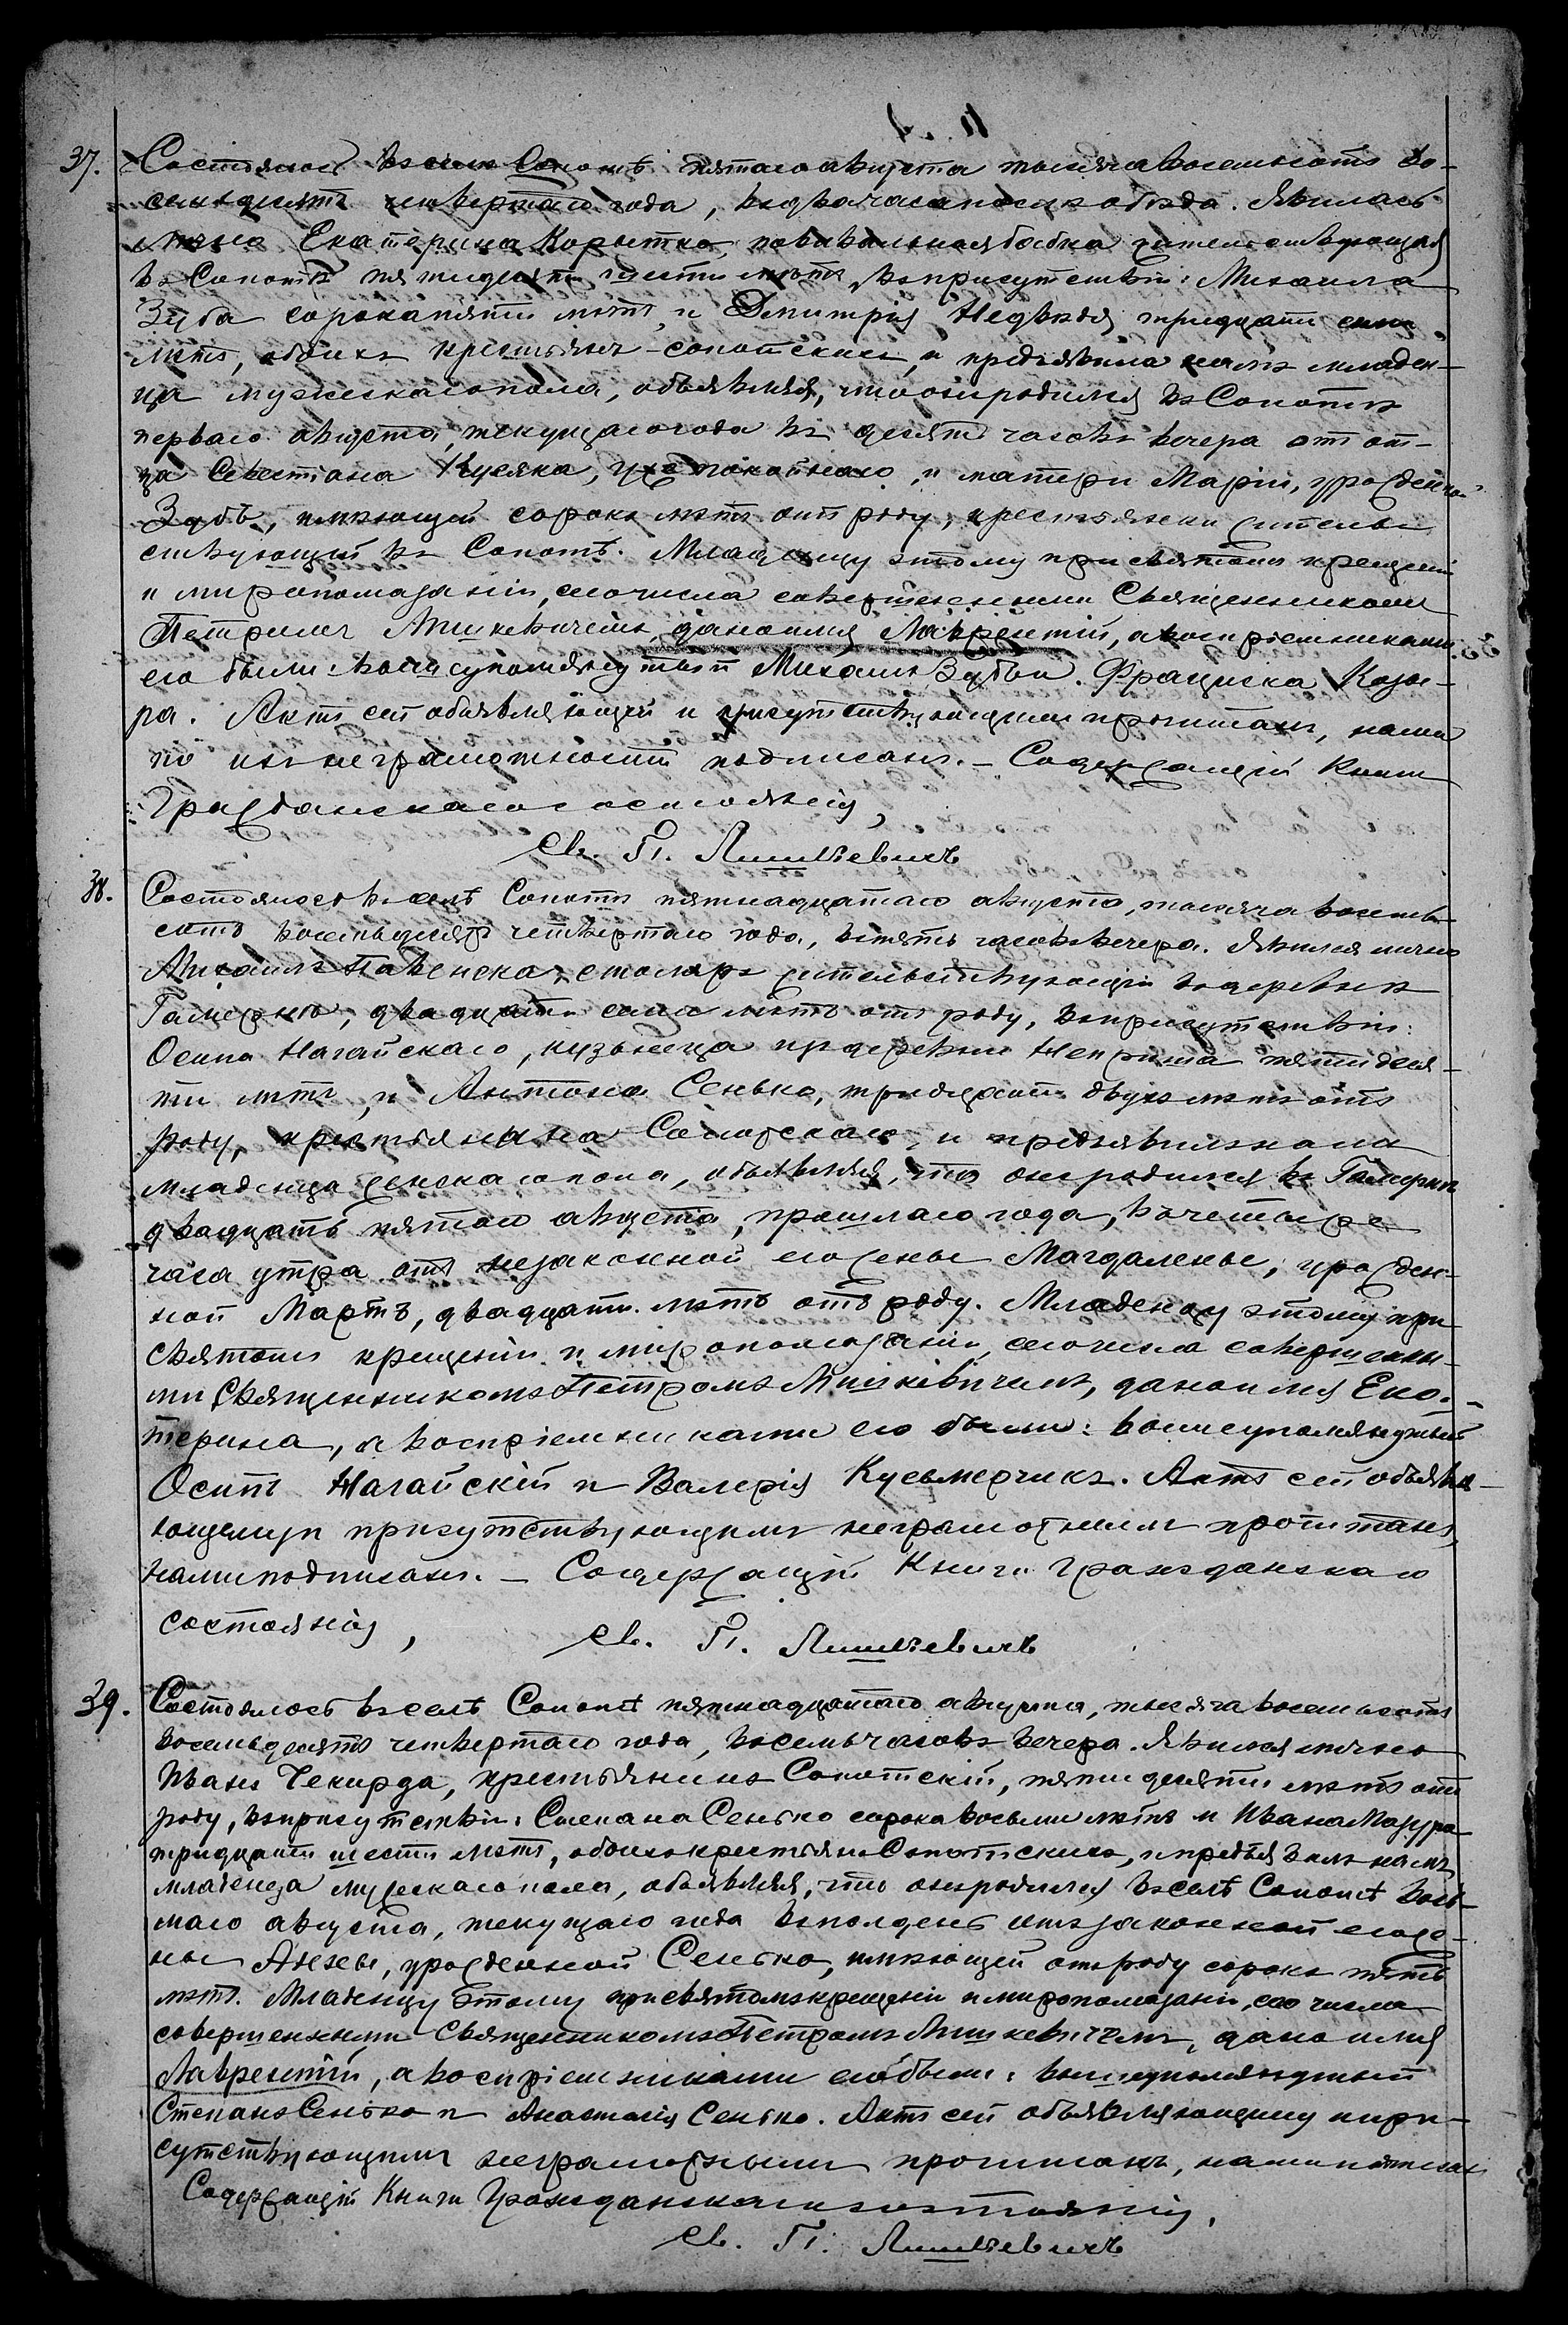 37. Состоялось въ селѣ Сопотѣ пятаго августа тысяча восемьсотъ во-
семьдесятъ четвертаго года, въ два часа после обѣда. Явилась
лично Екатерина Корытко, повивальная бабка жительствующая
въ Сопотѣ пятидесяти шести лѣтъ, въ присутствіи: Михаила
Зуба сорока пяти лѣтъ, и Дмитрія Недвѣдя тридцати семи
лѣтъ, обоихъ крестьянъ сопотскихъ, и предъявила намъ младен-
ца мужескаго пола, объявляя, что онъ родился въ Сопотѣ
перваго августа, текущаго года въ десять часовъ вечера отъ от-
ца Севестіана Кусяка, уже покойнаго, и матери Маріи, урожденной
Зубъ, имѣющей сорокъ лѣтъ отъ роду, крестьянки жительс-
ствующей въ Сопотѣ. Младенцу этому при святомъ крещеніи
и миропомазаніи, сего числа совершенными Священникомъ
Петромъ Лишкевичемъ, дано имя Лаврентій, а воспріемниками
его были: вышеупомянутый Михаилъ Зубъ и Франциска Козы-
ра. Актъ сей объявляющей и присутствующимъ прочитанъ, нами
по ихъ неграмотности подписанъ. – Содержащій Книги
Гражданскаго состоянія,
Св. П. Лишкевичъ
38. Состоялось въ селѣ Сопотѣ пятнадцатаго августа, тысяча восемь-
сотъ восемьдесятъ четвертаго года, въ пять часовъ вечера. Явился лично
Михаилъ столяръ жительствующій въ деревнѣ
Гамернѣ, двадцати семи лѣтъ отъ роду, въ присутствіи:
Осипа Нагайскаго, кузнеца изъ деревни пятидеся-
ти лѣтъ, и Антона Сенько, тридцати двухъ лѣтъ отъ
роду, крестьянина Сопотскаго, и предъявилъ намъ
младенца женскаго пола, объявляя, что онъ родился въ Гамернѣ
двадцать пятаго августа, прошлаго года, въ четыре
часа утра отъ законной его жены Магдалены, урожден-
ной Мартъ, двадцати лѣтъ отъ роду. Младенцу этому при
святомъ крещеніи и миропомазаніи, сего числа совершенны-
ми Священникомъ Петромъ Лишкевичемъ, дано имя Ека-
терина, а воспріемниками его были: вышеупомянутый
Осипъ Нагайскій и Валерія Кусьмерчикъ. Актъ сей объявля-
ющему и присутствующимъ неграмотнымъ прочитанъ,
нами подписанъ. – Содержащій Книги Гражданскаго
состоянія,
Св. П. Лишкевичъ
39. Состоялось въ селѣ Сопотѣ пятнадцатаго августа, тысяча восемьсотъ
восемьдесятъ четвертаго года, въ семь часовъ вечера. Явился лично
Иванъ Чекирда, крестьянинъ Сопотскій, пятидесяти лѣтъ отъ
роду, въ присутствіи: Степана Сенько сорока восьми лѣтъ и Ивана Мазура
тридцати шести лѣтъ, обоихъ крестьянъ Сопотскихъ, и предъявилъ намъ
младенца мужескаго пола, объявляя, что онъ родился въ селѣ Сопотѣ вось-
маго августа, текущаго года въ полдень отъ законной его же-
ны урожденной Сенько, имѣющей отъ роду сорокъ пять
лѣтъ. Младенцу этому при святомъ крещеніи и миропомазаніи, сего числа
совершенными Священникомъ Петромъ Лишкевичемъ, дано имя
Лаврентій, а воспріемниками его были: вышеупомянутый
Степанъ Сенько и Анастасія Сенько. Актъ сей объявляющему и при-
сутствующимъ неграмотнымъ прочитанъ, нами подписанъ
Содержащій Книги Гражданскаго состоянія,
Св. П. Лишкевичъ